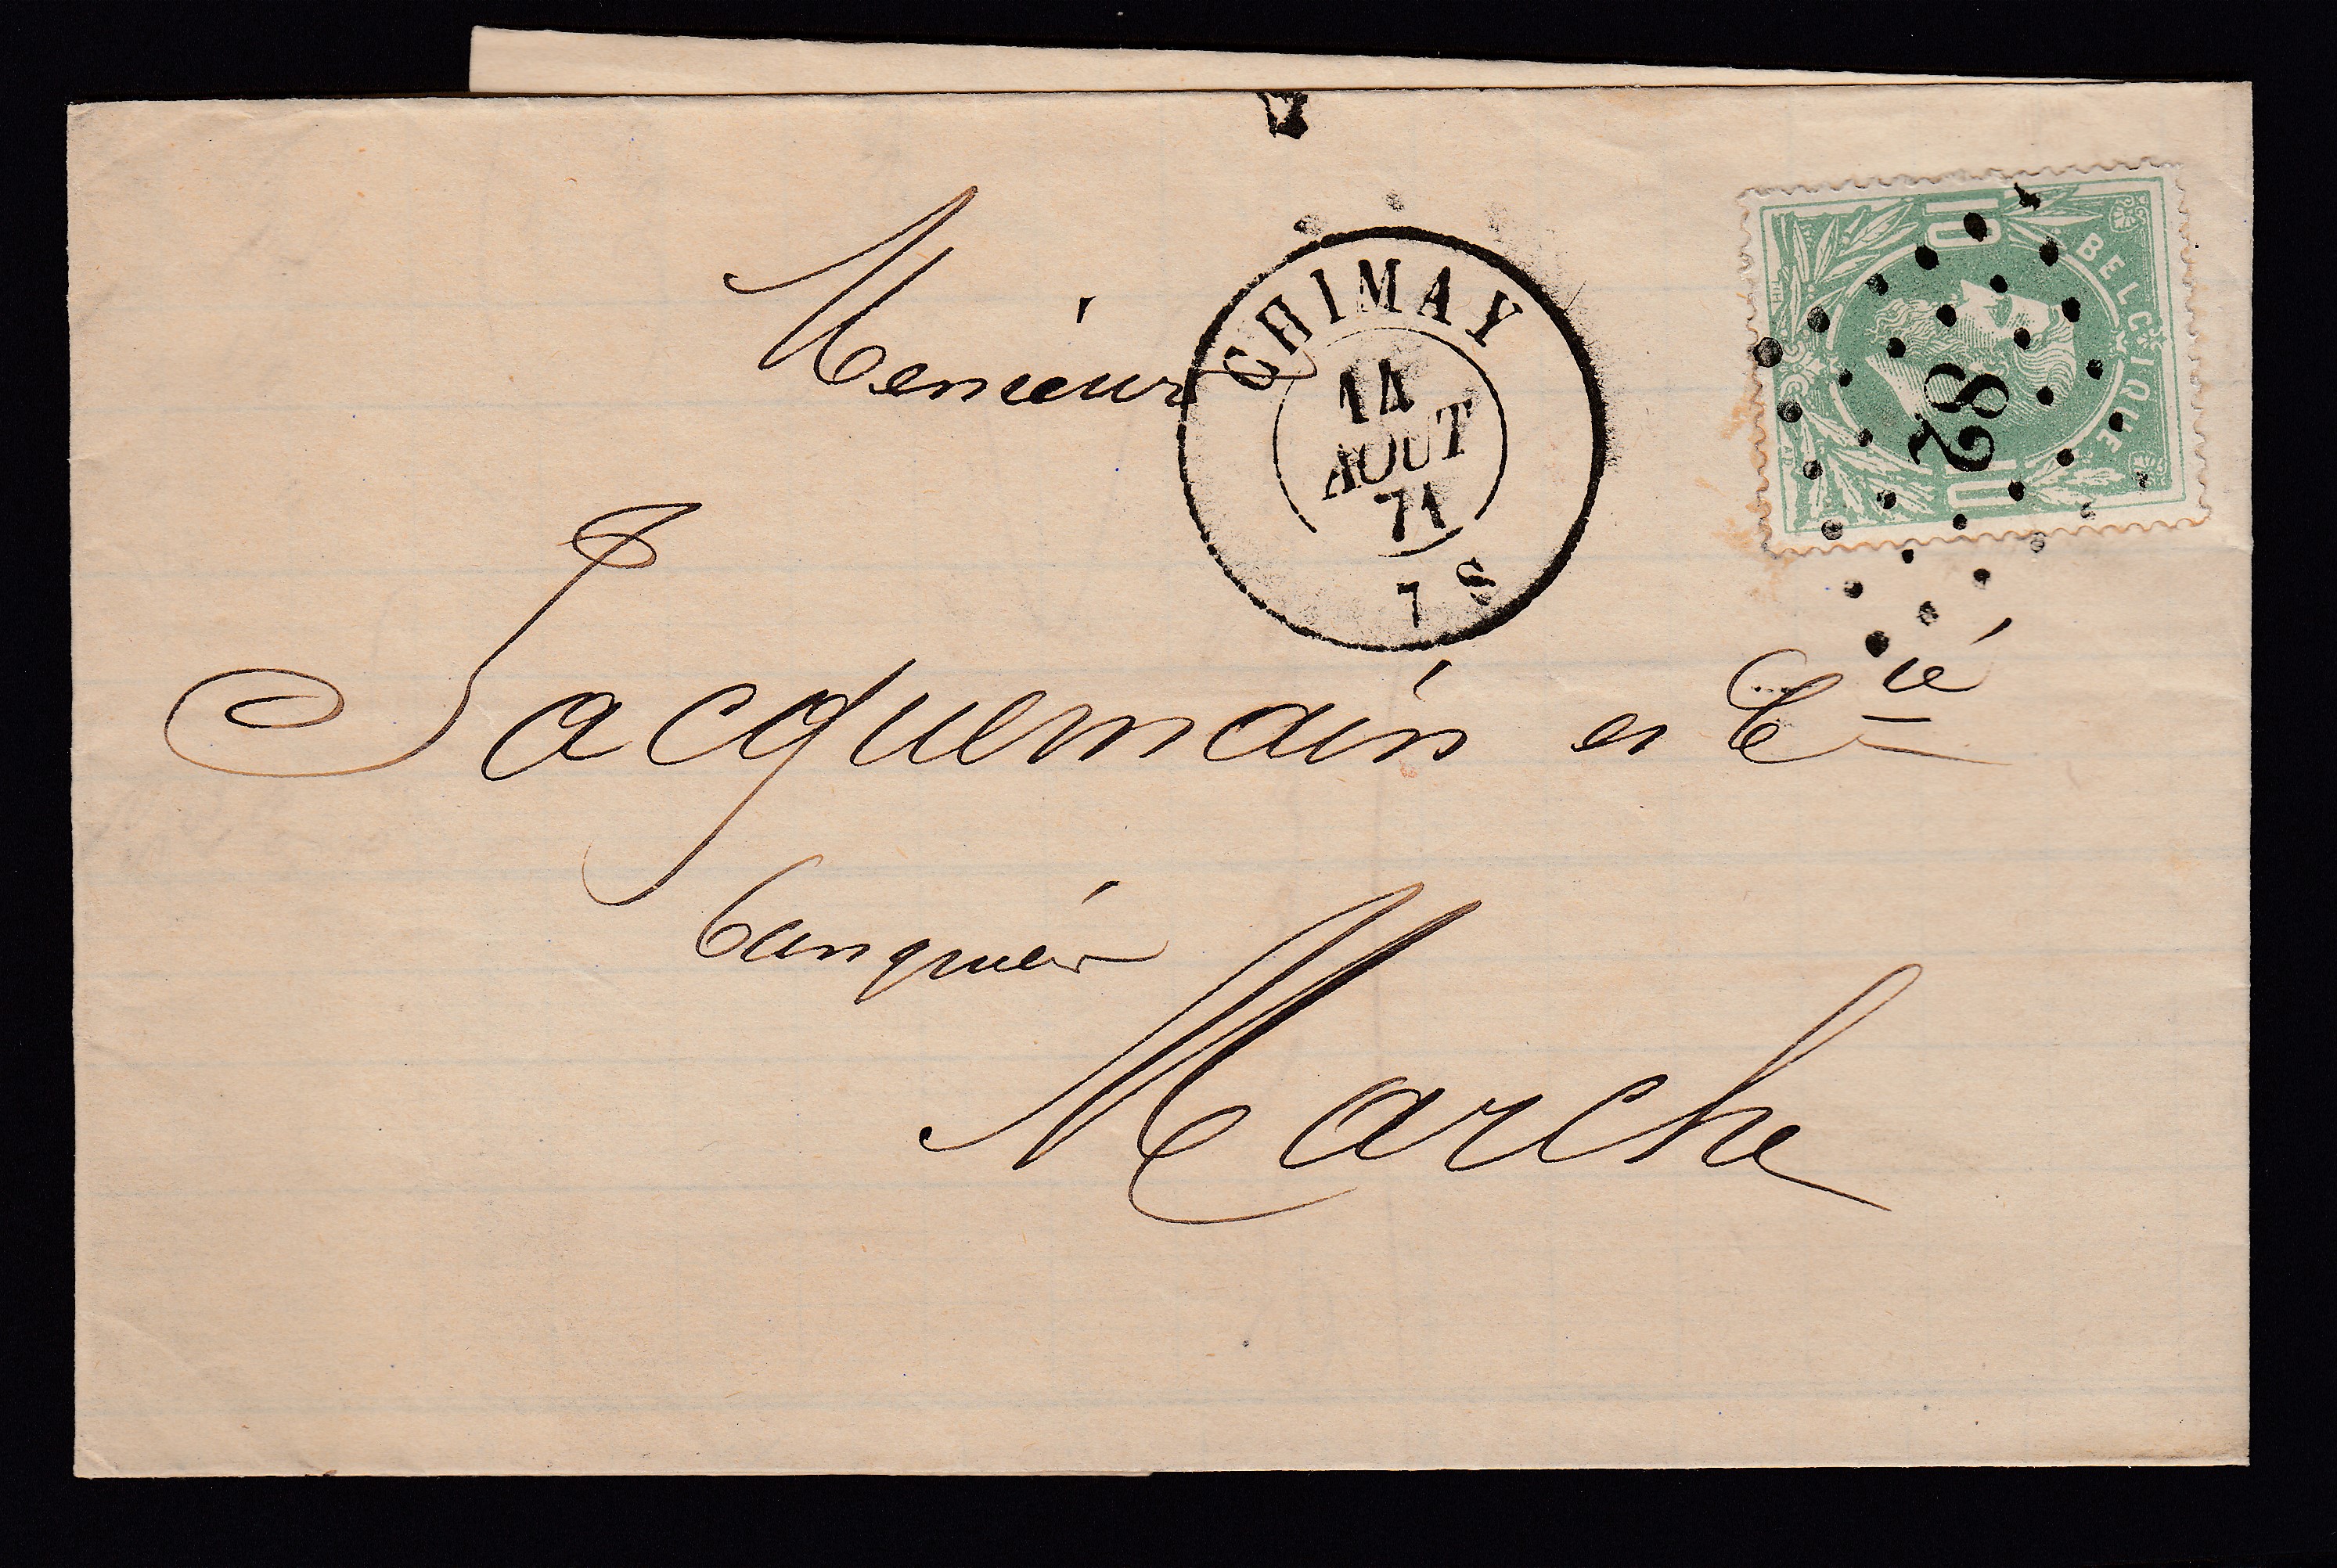 Mesieurs
CHIMAY
14
AOUT
71
7 S
10
BELGIQUE
82
10
Jacquemain et Cié
banquier
Marche